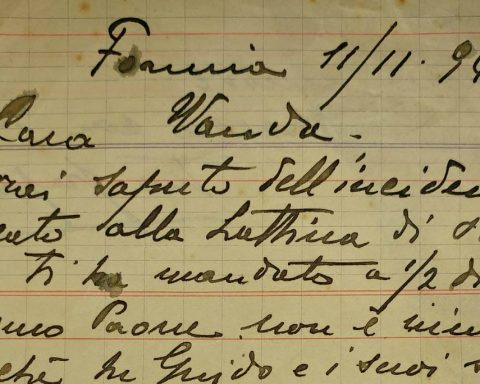 Formia 11/11.94
Cara Wanda.
rai saputo dell'inciden
cato alla Lattina di s
ti ha mandato a 1/2 di
mo Paone non è
chè tu Guido e i suoi